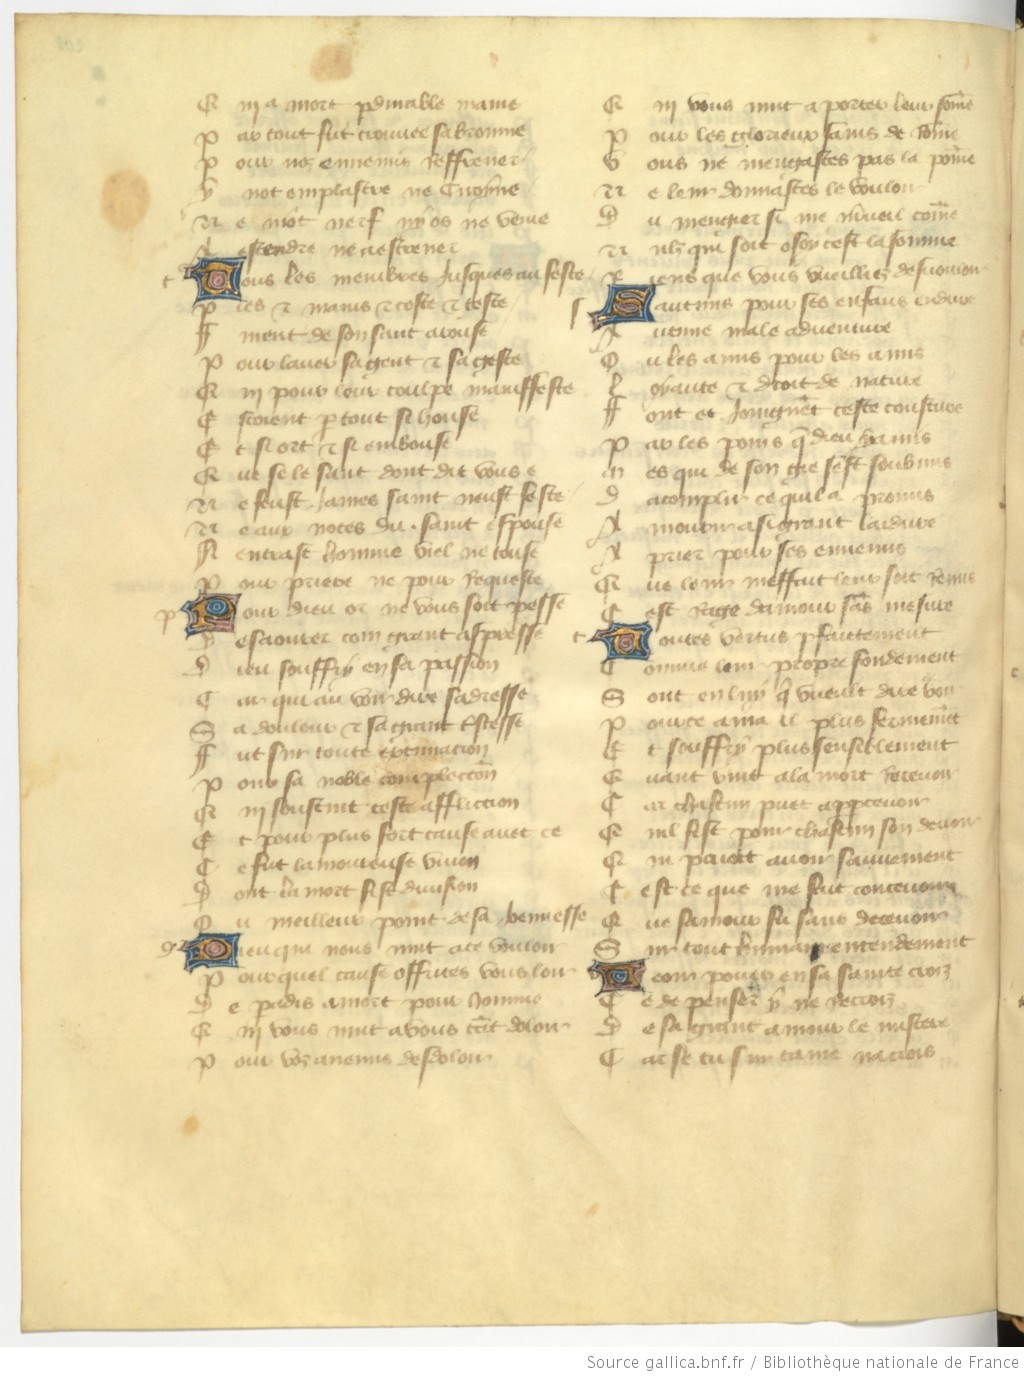 Qui a mort pdurable maine
Par tout fut trouuee sa bronme
Pour noz ennemis reffrener
Y not emplastre ne
Ne mot nerf ny os ne veine
A estendre ne a estrener
Tous les membres jusques au feste
Pies et mains et coste et teste
Ffurent de son sanc arouse
Pour lauer sa gent et sa geste
Qui pour leur coulpe maniffeste
Estoient p tout si housé
Et si ort et si embousé
Que se le sanc dont dit vous e
Ne feust james saint neust feste
Ne aux noces du saint espouse
N entrast homme viel ne touse
Pour priere ne pour requeste
Pour dieu or ne vous soit pesse
Desaourer com grant aspresse
Dieu souffry en sa passion
Car qui au voir dire sadresse
Sa doulour et sa grant tristesse
Fut sur toute
Pour sa noble complection
Qui soustint ceste affliction
Et pour plus fort cause auec ce
Ce fut la monteuse vnion
Dont la mort fist diuision
Ou meilleur point de sa jeunesse
Dieu qui nous mit a ce vouloir
Pour quel cause offrites vous lour
De padis a mort pour homme
Qui vous mut a vous tant doloir
Pour voz anemis desdoloir
Qui vous mut a porter leur somme
Pour les glorieux sains de Rome
Vous ne mengastes pas la pome
Ne leur donnastes le vouloir
Du mengier si me merueil comme
Nulz qui soit osoy cest la somme
Riens que vous vueilliez desuouloir
Sauciuns pour ses enfans endure
Aucune male aduenture
Ou les amis pour les amis
Loyaute et droit de nature
Ffont et joingnent ceste cousture
Par les poins que dieu y a mis
Mes qui de son gre sest soubmis
D acomplir ce quil a promis
A mourir a si grant laidure
A prier pour ses ennemis
Que leur meffait leur soit remis
Cest rage damour sans mesure
Toutes vertus pfaictement
Comme leur propre fondement
Sont en luy qui vueult dire voir
Pource ama il plus fermement
Et souffry plus sensiblement
Quant vint a la mort receuoir
Car chascun puet apperceuoir
Quil fist pour chascun son deuoir
Qui peust auoir sauuement
Cest ce que me fait conceuoir
Que samour fu sans deceuoir
Sur tout humain entendement
Decour pouoir en sa sainte croiz
Ce de penser y ne recroiz
De sa grant amour le mistere
Car se tu sur tame